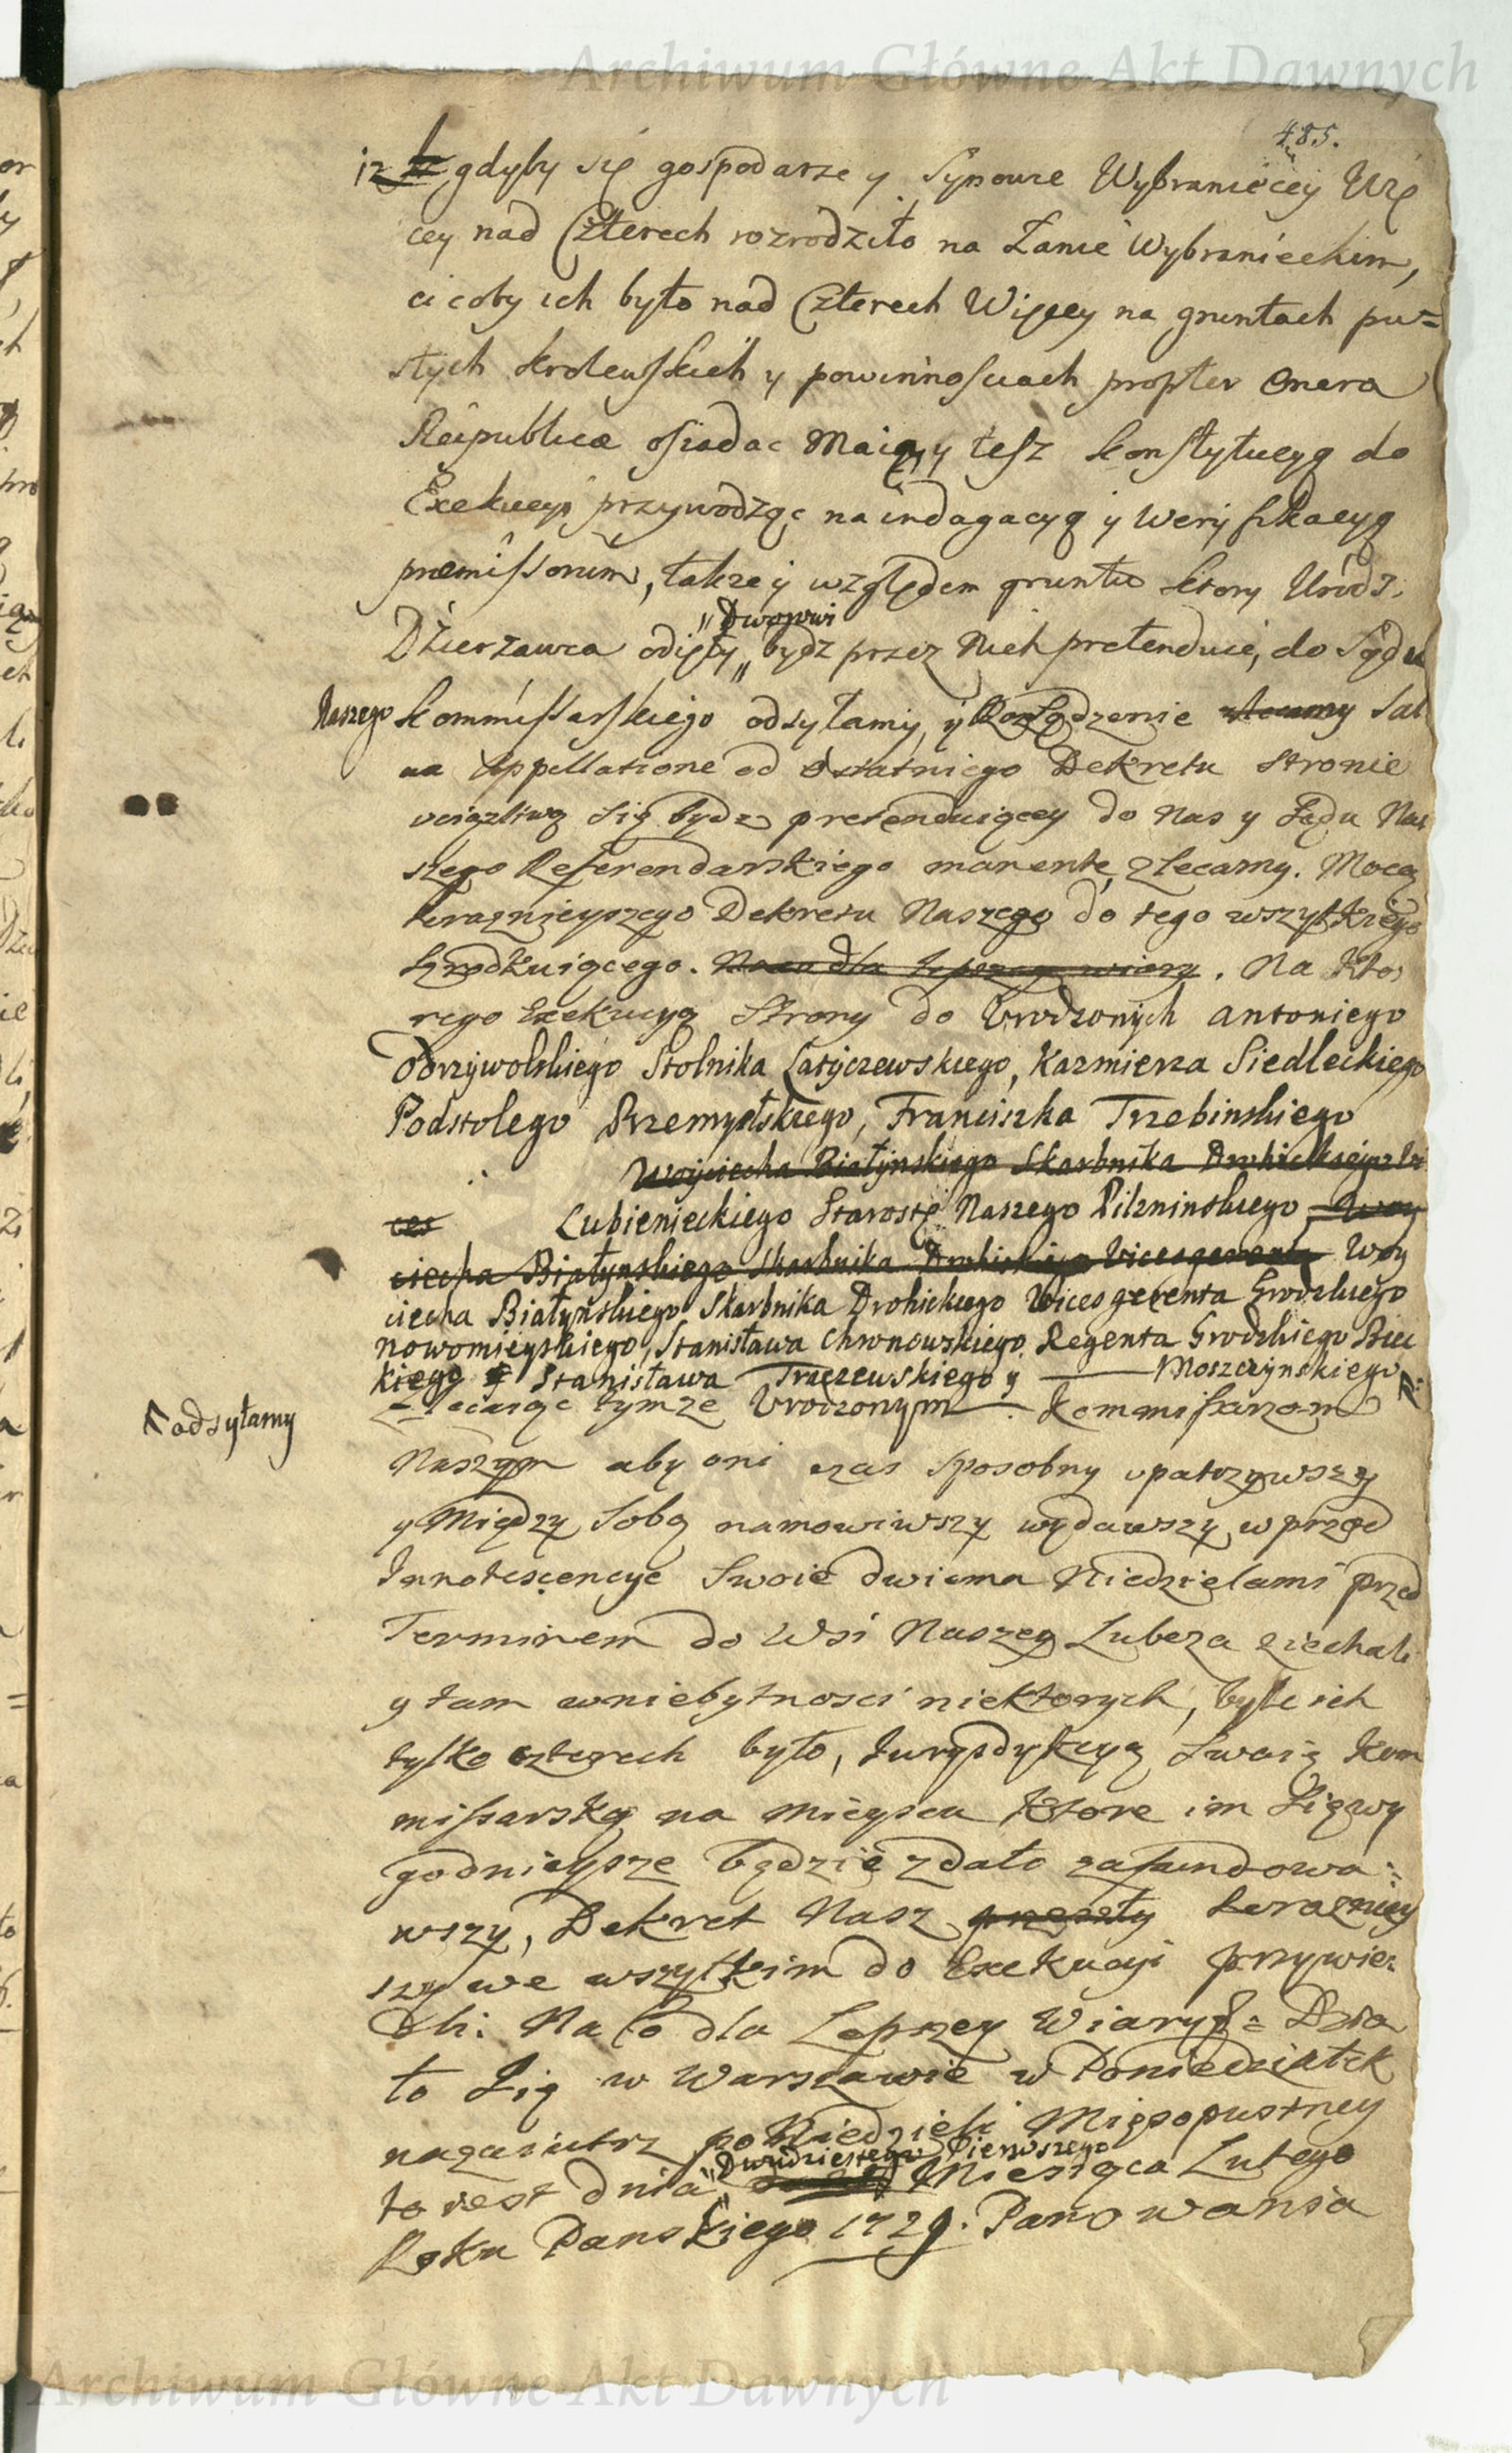 Archiwum Główne Akt Dawnych
485.
iz gdyby się gospodarze y Synowie Wybraniecey Wię
cey nad Czterech rozrodziło na Łanie Wybranieckim,
ci coby ich było nad Czterech Więcey na gruntach pu=
stych krolewskich y powinnosciach propter Onera
Reipublicæ osiadac Maią, y tesz konstytucyą do
Exekucyi przywodząc na indagacyą y Weryfikacyą
præmissorum, takze y względem gruntu ktory Urodz:
"Dworowi
Dzierzawca odięty " bydz przez Nich pretenduie, do Sądu
Naszego Kommissarskiego odsyłamy, y Rosądzenie Sal
ua Appellatione od Ostatniego Dekretu stronie
uciązliwą się bydz pretenduiącey do Nas y Sądu Na
szego Referendarskiego manente zlecamy. Mocą
teraznieyszego Dekretu Naszego do tego wszystkiego
Srzodkuiącego. Na co dla lepszey wiary. Na Kto,
rego Exekucyą Strony do Urodzonych Antoniego
Odrzywolskiego Stolnika Latyczewskiego, Kazmierza Siedleckiego
Podstolego Przemyslskiego, Franciszka Trzebinskiego
Woyciecha Białynskiego Skarbnika Drohickiego
Lubienieckiego Starostę Naszego Pilzninskiego, Woy
ciecha Białynskiego Skarbnika Drohickiego Vicesgerenta Woy
ciecha Białynskiego Skarbnika Drohickiego Vicesgerenta Grodzkiego
nowomieyskiego, Stanisława Chronowskiego Regenta Grodzkiego Biec
kiego Stanisława Traczewskiego y Moszczynskiego
odsyłamy
Zlecaiąc tymze Urodzonym Kommissarzom
Naszym aby oni czas sposobny upatrzywszy
y Między Sobą namowiwszy wydawszy w przod
Innotescencye Swoie dwiema Niedzielami przed
Terminem do Wsi Naszey Lubcza ziechali
y tam w niebytnosci niektorych, byle ich
tylko czterech było, Jurysdykcyą Swoią Kom
missarską na mieyscu Ktore im Się wy
godnieysze będzie zdało zafundowa=
wszy, Dekret Nasz terazniey
szy we wszytkim do Exekucyi przywie,
dli. Na Co dla Lepszey Wiary &c Dzia
to Się w Warszawie w Poniedziałek
nazaiutrz po Niedzieli Mięsopustney
"Dwudziestego Pierwszego
to iest dnia " Miesiąca Lutego
Roku Panskiego 1729. Panowania
Archiwum Główne Akt Dawnych